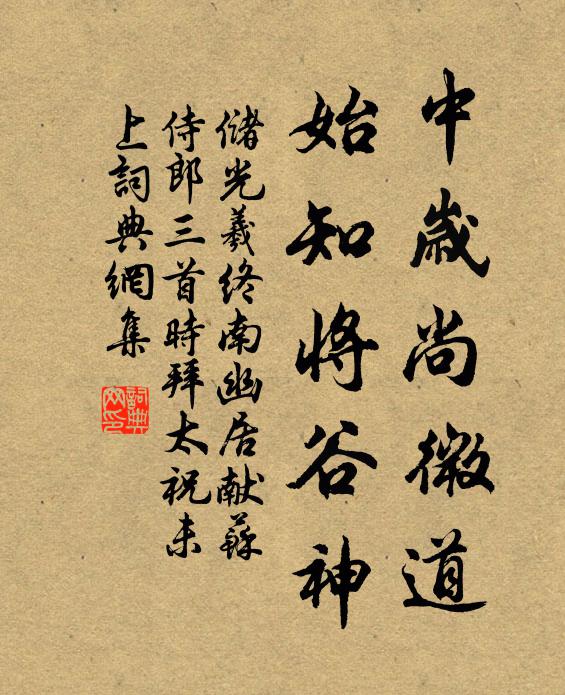 中歲尚微道
始知將谷神
儲光羲終南幽居献蘇
侍郎三首時拜太祝未
上詞典網集
詞典
网印